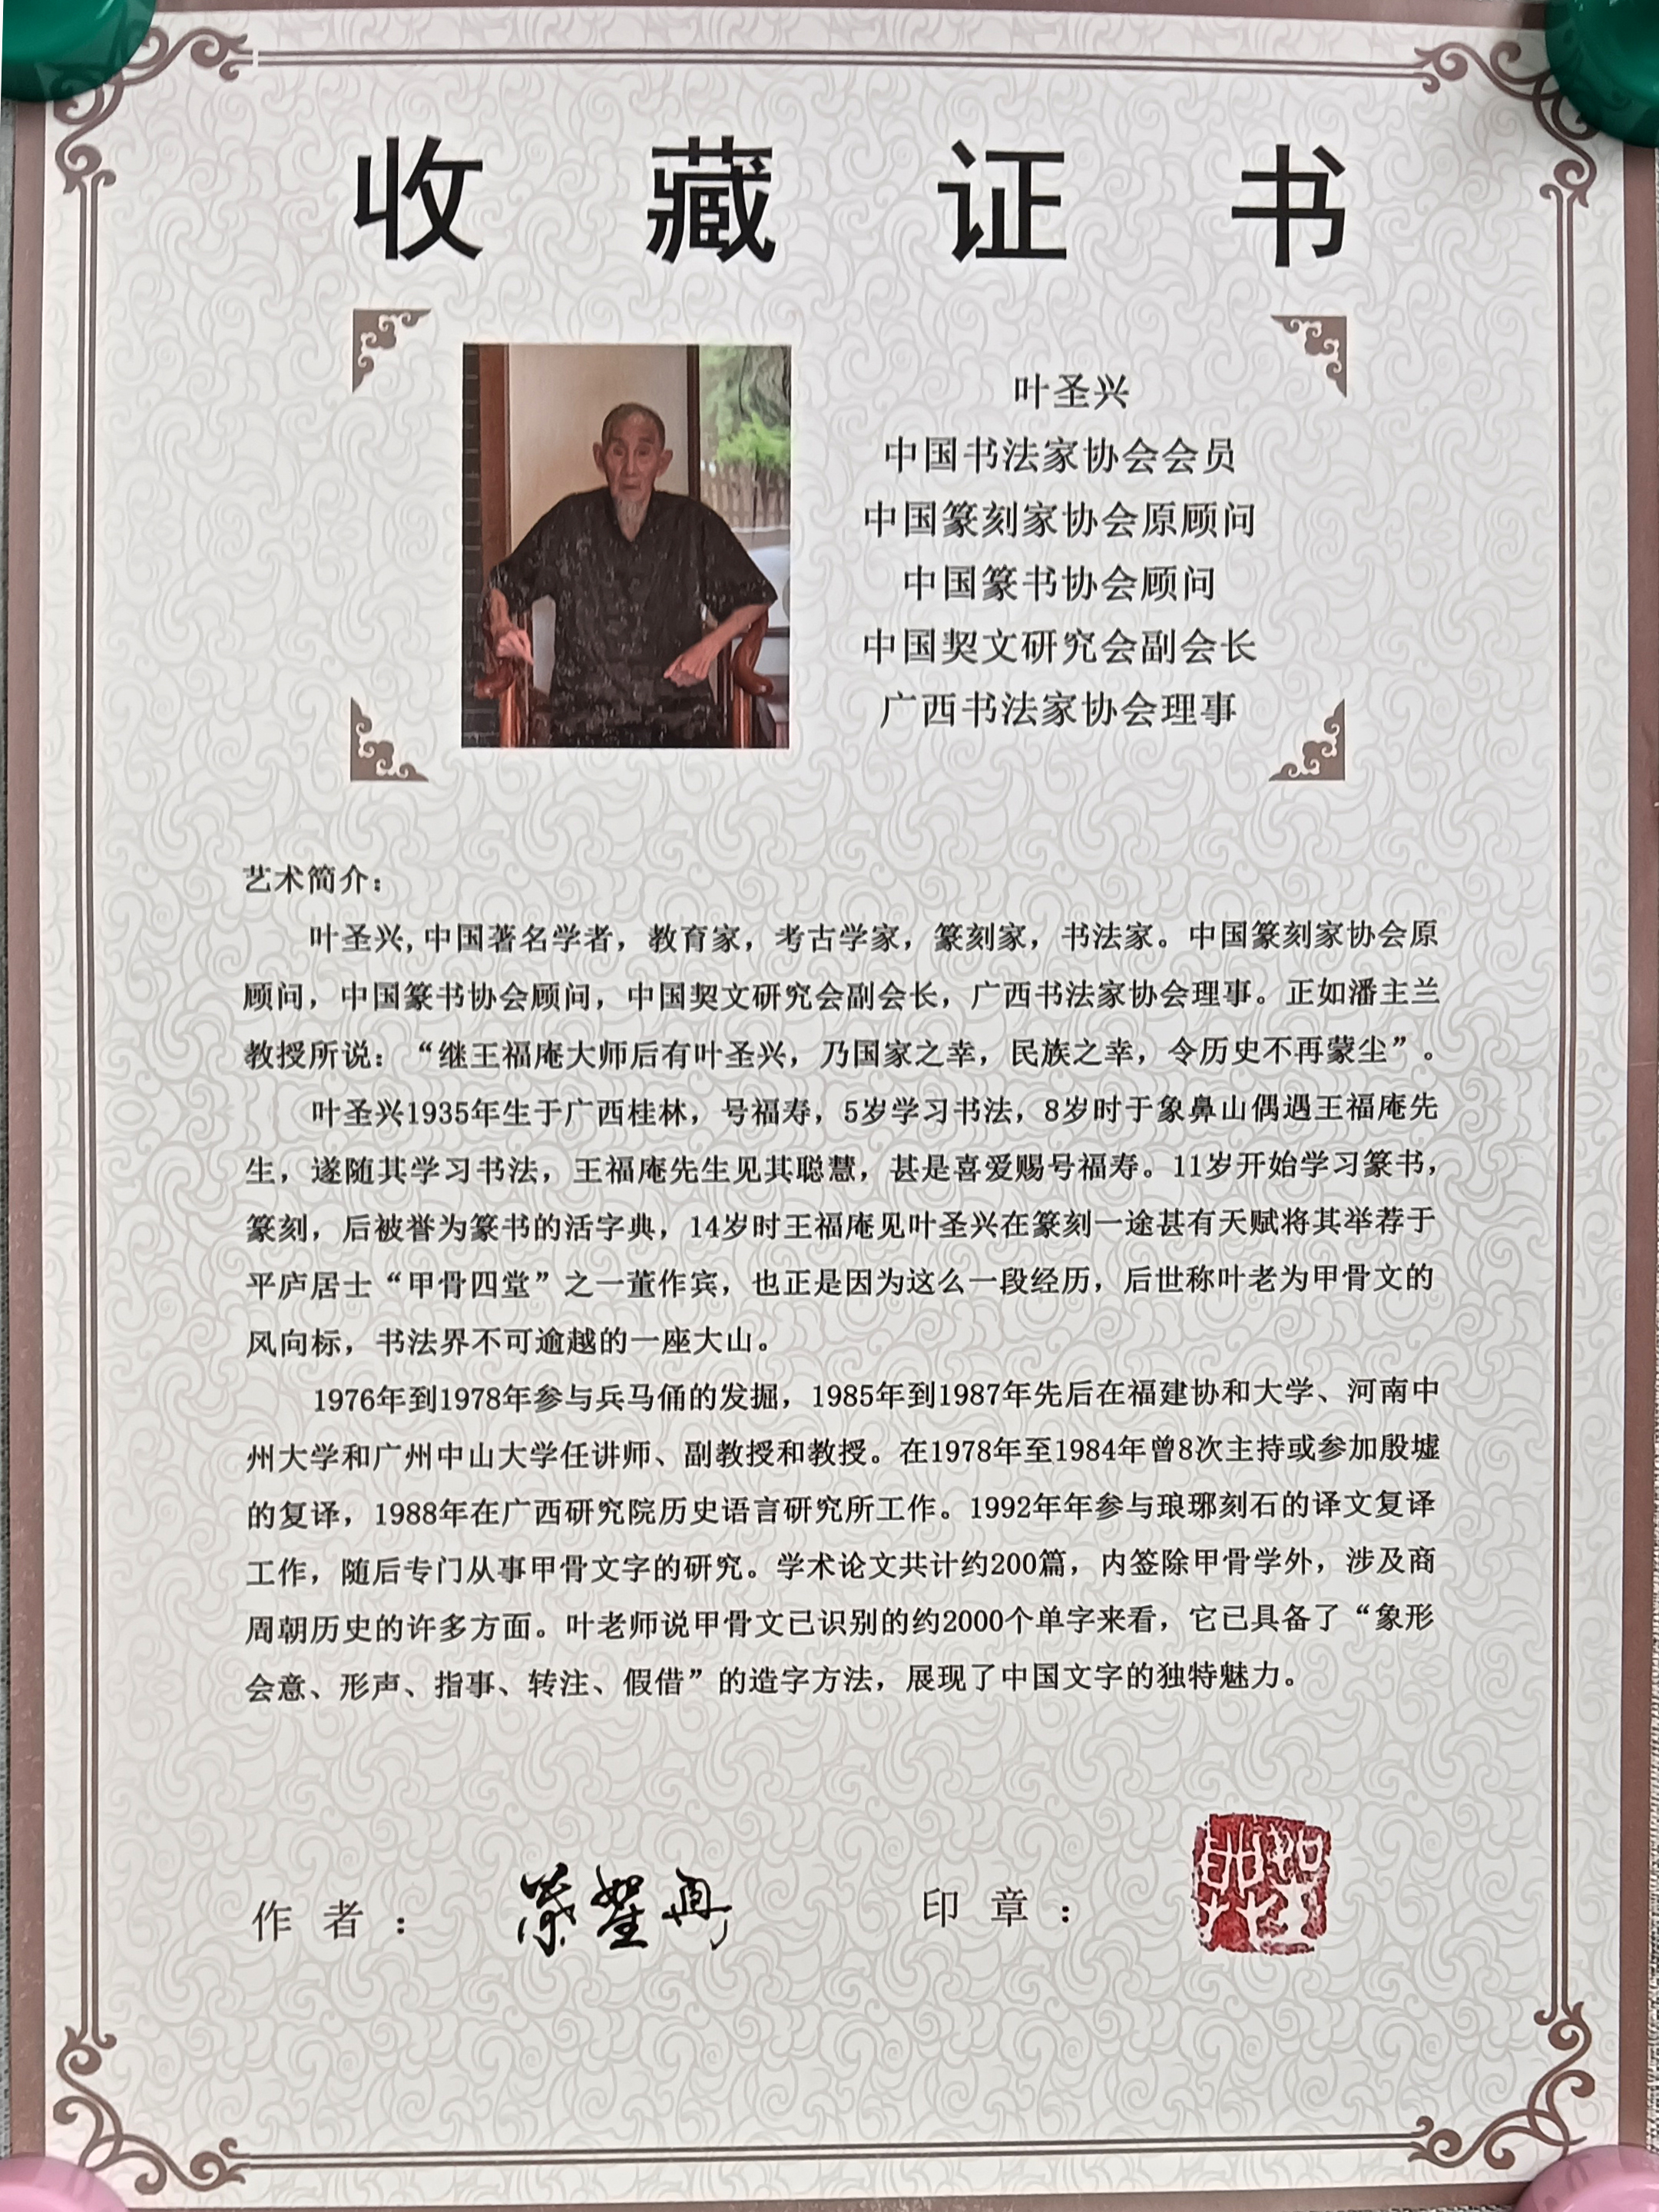 收藏证书
叶圣兴
中国书法家协会会员
中国篆刻家协会原顾问
中国篆书协会顾问
中国契文研究会副会长
广西书法家协会理事
艺术简介：
叶圣兴,中国著名学者，教育家，考古学家，篆刻家，书法家。中国篆刻家协会原
顾问，中国篆书协会顾问，中国契文研究会副会长，广西书法家协会理事。正如潘主兰
教授所说：“继王福庵大师后有叶圣兴，乃国家之幸，民族之幸，令历史不再蒙尘”。
叶圣兴1935年生于广西桂林，号福寿，5岁学习书法，8岁时于象鼻山偶遇王福庵先
生，遂随其学习书法，王福庵先生见其聪慧，甚是喜爱赐号福寿。11岁开始学习篆书，
篆刻，后被誉为篆书的活字典，14岁时王福庵见叶圣兴在篆刻一途甚有天赋将其举荐于
平庐居士“甲骨四堂”之一董作宾，也正是因为这么一段经历，后世称叶老为甲骨文的
风向标，书法界不可逾越的一座大山。
1976年到1978年参与兵马俑的发掘，1985年到1987年先后在福建协和大学、河南中
州大学和广州中山大学任讲师、副教授和教授。在1978年至1984年曾8次主持或参加殷墟
的复译，1988年在广西研究院历史语言研究所工作。1992年年参与琅琊刻石的译文复译
工作，随后专门从事甲骨文字的研究。学术论文共计约200篇，内签除甲骨学外，涉及商
周朝历史的许多方面。叶老师说甲骨文已识别的约2000个单字来看，它已具备了“象形
会意、形声、指事、转注、假借”的造字方法，展现了中国文字的独特魅力。
作者：
印章：